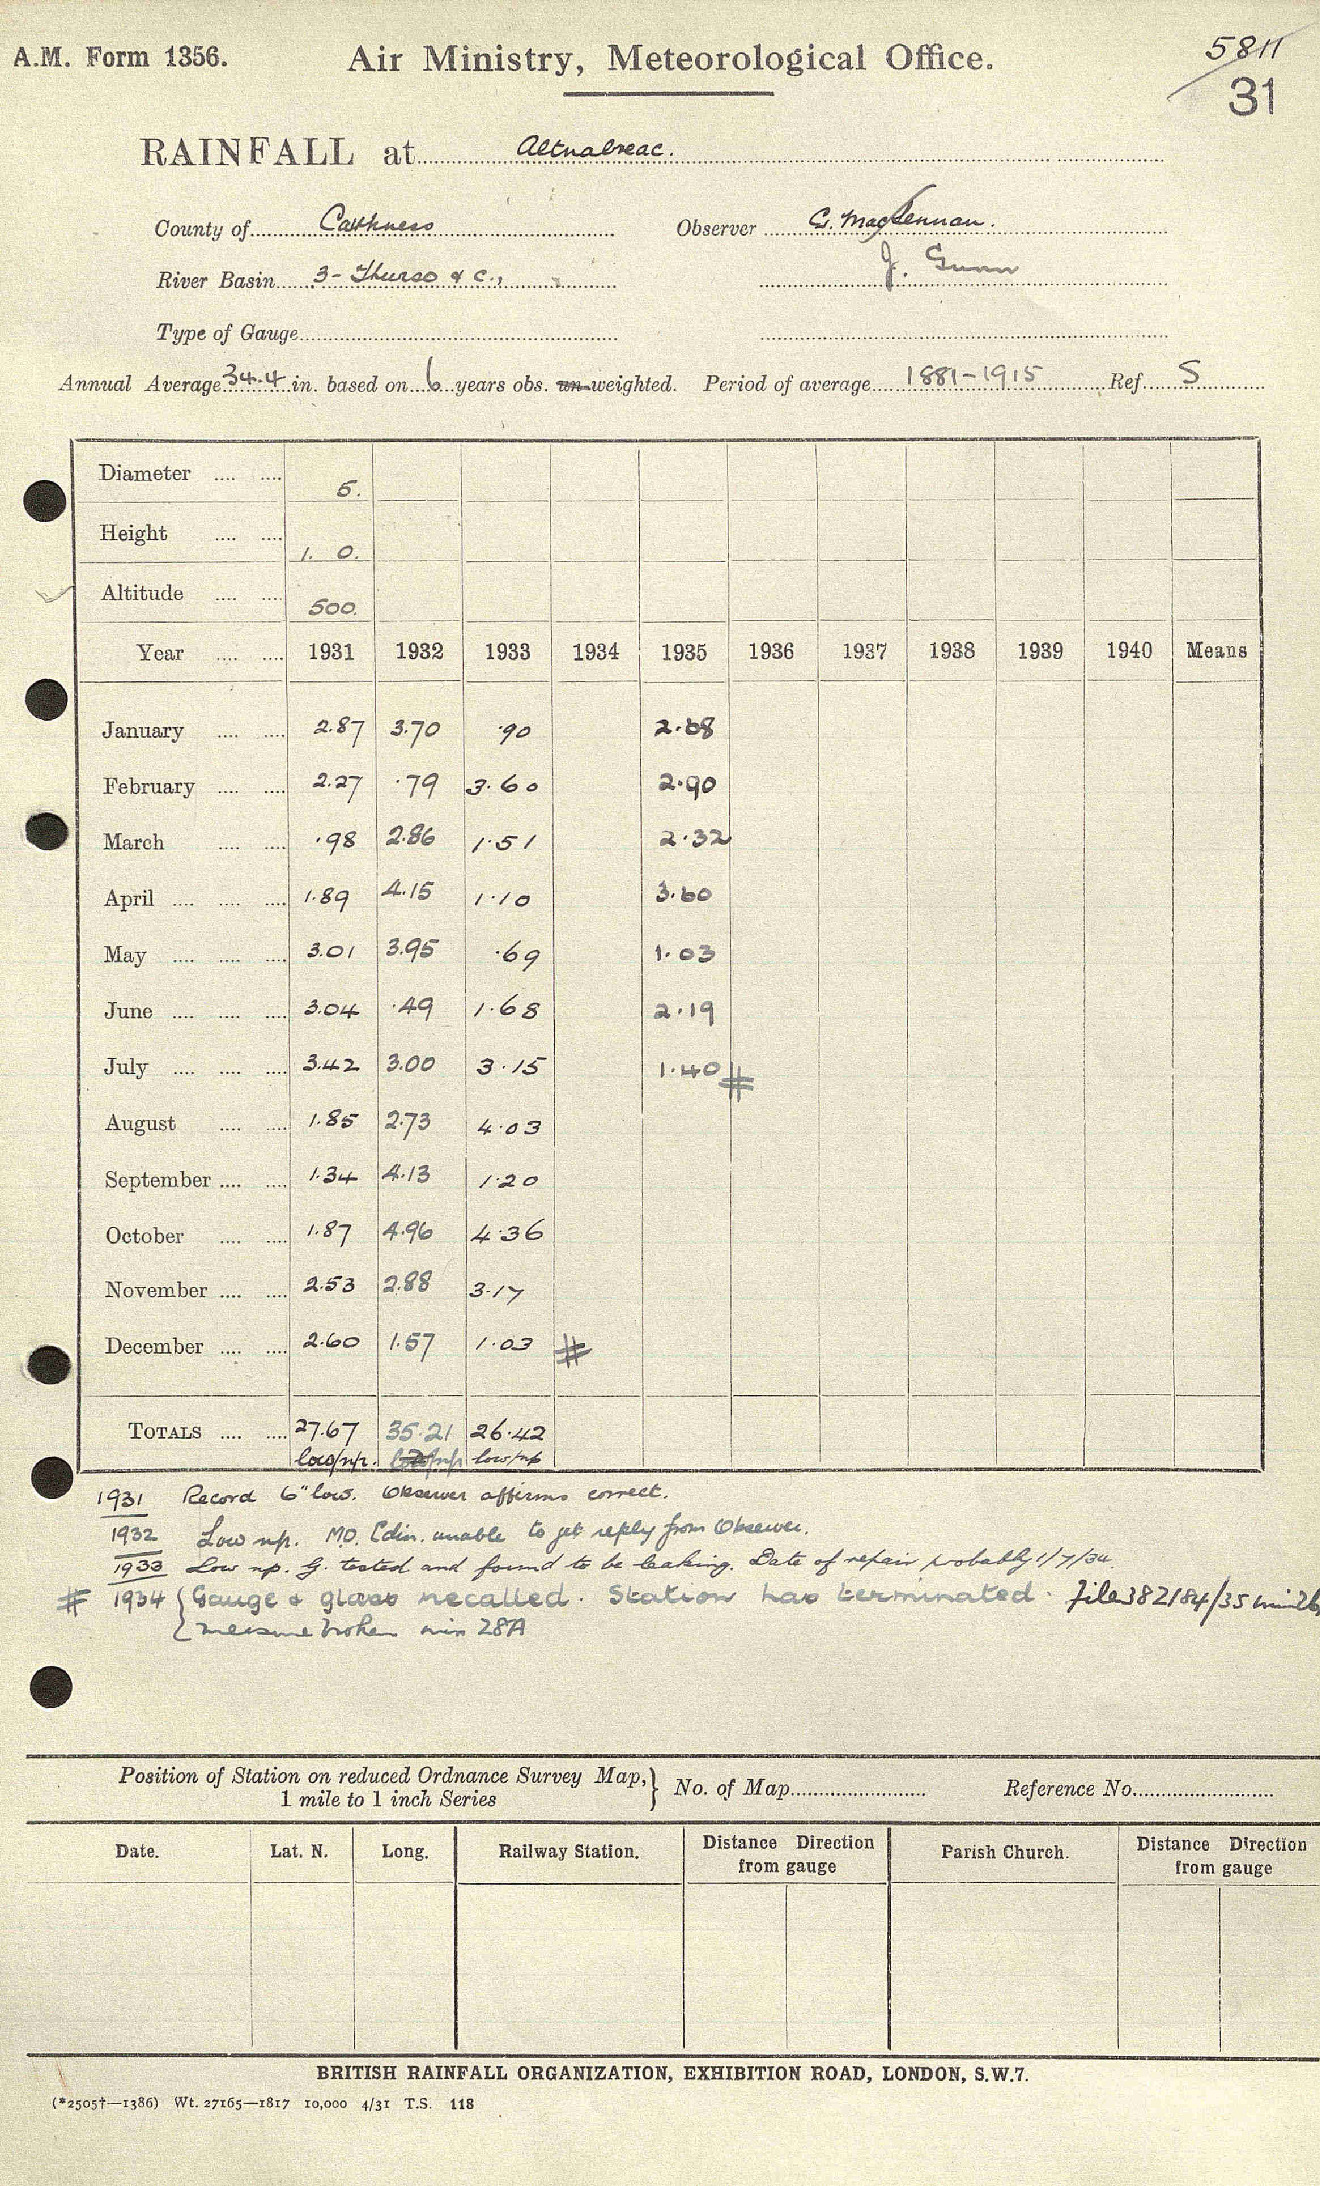 A.M. Form 1356.
Air Ministry, Meteorological Office.
5811
31
RAINFALL at Altnabreac.
County of Caithness Observer G. MacLennan.
River Basin 3 - Thurso & c., J. Gunn
Type of Gauge
Annual Average 34.4 in. based on 6 years obs. un-weighted. Period of average 1881-1915 Ref. S
Diameter .... .... 5.
Height .... .... 1. 0.
Altitude .... .... 500.
Year .... .... 1931 1932 1933 1934 1935 1936 1937 1938 1939 1940 Means
January .... .... 2.87 3.70 .90 2.68
February .... .... 2.27 .79 3.60 2.90
March .... .... .98 2.86 1.51 2.32
April .... .... .... 1.89 4.15 1.10 3.60
May .... .... .... 3.01 3.95 .69 1.03
June .... .... .... 3.04 .49 1.68 2.19
July .... .... .... 3.42 3.00 3.15 1.40 #
August .... .... 1.85 2.73 4.03
September .... .... 1.34 4.13 1.20
October .... .... 1.87 4.96 4.36
November .... .... 2.53 2.88 3.17
December .... .... 2.60 1.57 1.03 #
TOTALS .... .... 27.67 35.21 26.42
low/np. low/np low/np
1931 Record 6" low. Observer affirms correct.
1932 Low np. M.O. Edin. unable to get reply from Observer.
1933 Low np. G. tested and found to be leaking. Date of repair probably 1/7/34
# 1934 { Gauge & glass recalled. Station has terminated. file 382184/35 min 26
measure broken min 28A
Position of Station on reduced Ordnance Survey Map, } No. of Map Reference No.
1 mile to 1 inch Series
Date. Lat. N. Long. Railway Station. Distance Direction from gauge Parish Church. Distance Direction from gauge
BRITISH RAINFALL ORGANIZATION, EXHIBITION ROAD, LONDON, S.W.7.
(*2505†—1386) Wt. 27165—1817 10,000 4/31 T.S. 118